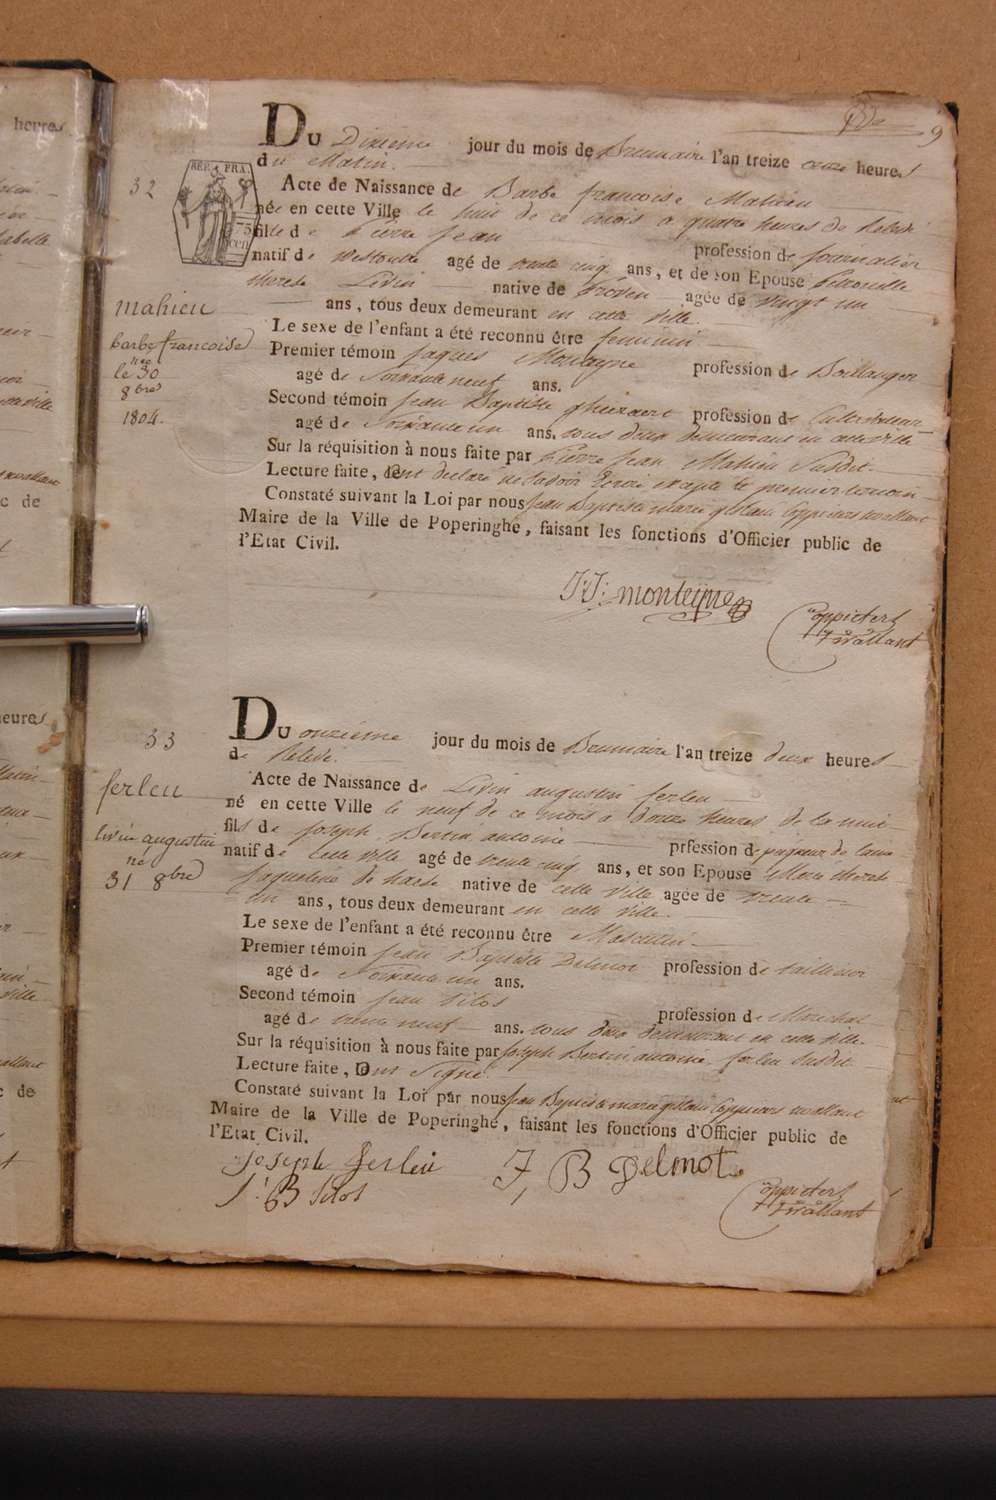 heures
9
Du Dixieme jour du mois de Brumaire l'an treize onze heures
du Matin.
32
REP. FRA.
75
cen
Acte de Naissance de Barbe francoise Mahieu
née en cette Ville le huit de ce mois a quatre heures de Relevé
fille de Pierre Jean profession de journalier
natif de Westoutre agé de trente cinq ans, et de son Epouse Petronille
therese Livin native de Proven agée de vingt un
ans, tous deux demeurant en cette ville.
mahieu
barbe francoise
née
le 30
8bres
1804.
Le sexe de l'enfant a été reconnu être feminin
Premier témoin Jaques Monteyne profession de Boullanger
agé de Soixante neuf ans.
Second témoin Jean Baptiste ghieraert profession de Cultivateur
agé de Soixante un ans. tous deux demeurant en cette ville
Sur la réquisition à nous faite par Pierre Jean Mahieu Susdit.
Lecture faite, ont declaré ne Savoir Ecrire excepté le premier temoin
Constaté suivant la Loi par nous Jean Baptiste marie ghislain Coppieters wallant
Maire de la Ville de Poperinghe, faisant les fonctions d'Officier public de
l'Etat Civil.
J:J: monteyne
Coppieters
Twallant
33
Du onzieme jour du mois de Brumaire l'an treize deux heures
de Relevé.
ferleu
livin augustin
né
31 8bre
Acte de Naissance de Livin augustin ferleu
né en cette Ville le neuf de ce mois a douze heures de la nuit
fils de Joseph Bertin antoine prfession de pagneur de laine
natif de cette ville agé de trente cinq ans, et son Epouse Marie therese
Jaqueline de haese native de cette ville agée de trente
un ans, tous deux demeurant en cette ville.
Le sexe de l'enfant a été reconnu être Masculin
Premier témoin Jean Baptiste Delmot profession de tailleur
agé de Soixante un ans.
Second témoin Jean Titos profession de Marechal
agé de trente neuf ans. tous deux demeurant en cette ville.
Sur la réquisition à nous faite par Joseph Bertin antoine ferleu Susdit.
Lecture faite, Ont Signé.
Constaté suivant la Loi par nous Jean Baptiste marie ghislain Coppieters wallant
Maire de la Ville de Poperinghe, faisant les fonctions d'Officier public de
l'Etat Civil.
Joseph Ferleu
J, B Delmot
J: B Titos
Coppieters
Twallant